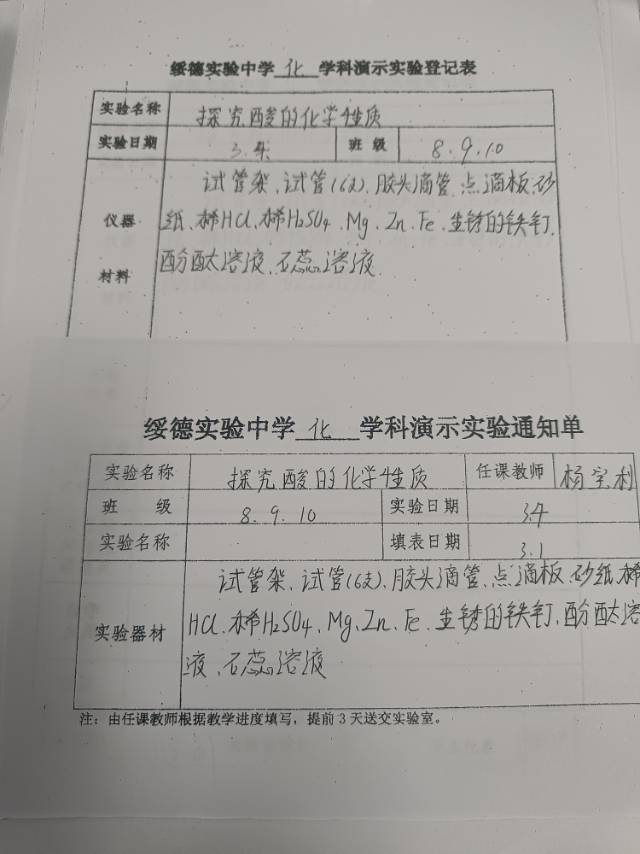 绥德实验中学 化 学科演示实验登记表
实验名称 探究酸的化学性质
实验日期 3.4. 班级 8.9.10
仪器
材料
试管架、试管(6支)、胶头滴管、点滴板、砂
纸、稀HCl、稀H₂SO₄、Mg、Zn、Fe、生锈的铁钉、
酚酞溶液、石蕊溶液
绥德实验中学 化 学科演示实验通知单
实验名称 探究酸的化学性质 任课教师 杨宝利
班 级 8.9.10 实验日期 3.4
实验名称 填表日期 3.1
实验器材
试管架、试管(6支)、胶头滴管、点滴板、砂纸、稀
HCl、稀H₂SO₄、Mg、Zn、Fe、生锈的铁钉、酚酞溶
液、石蕊溶液
注：由任课教师根据教学进度填写，提前 3 天送交实验室。